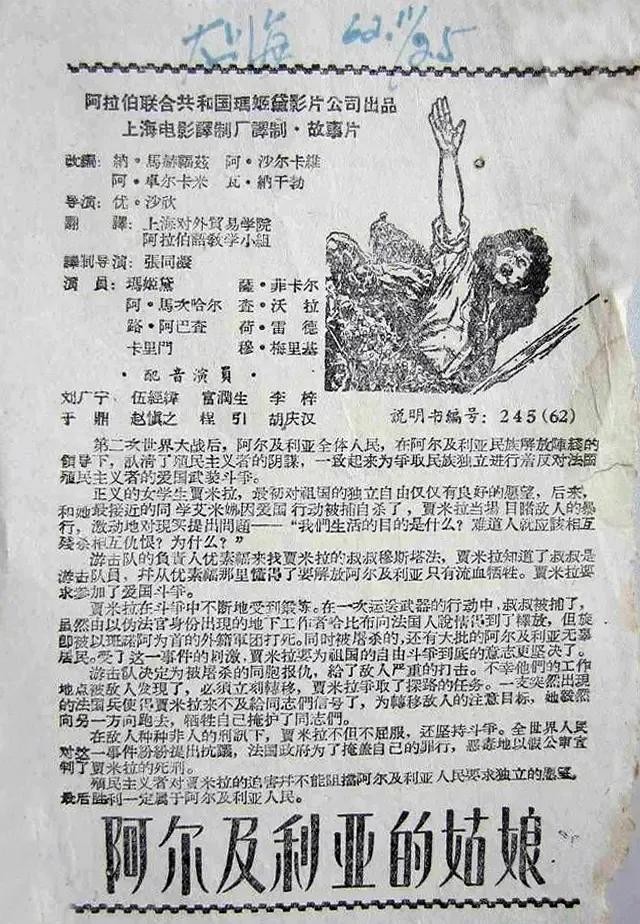 大海 62.11/25
阿拉伯联合共和国瑪姬黛影片公司出品
上海电影譯制厂譯制·故事片
改編：納·馬赫福茲 阿·沙尔卡維
阿·卓尔卡米 瓦·納干勃
导演：优·沙欣
翻譯：上海对外貿易学院
阿拉伯語敎学小組
譯制导演：張同凝
演員：瑪姬黛 薩·菲卡尔
阿·馬次哈尔 查·沃拉
路·阿巴查 荷·雷德
卡里門 穆·梅里基
·配音演員·
刘广宁 伍經緯 富潤生 李梓
于鼎 赵愼之 程引 胡庆汉
說明书編号：245(62)
第二次世界大战后，阿尔及利亚全体人民，在阿尔及利亚民族解放陣綫的
領导下，認清了殖民主义者的阴謀，一致起来为爭取民族独立进行着反对法国
殖民主义者的爱国武装斗爭。
正义的女学生賈米拉，最初对祖国的独立自由仅仅有良好的愿望，后来，
和她最接近的同学艾米娣因爱国行动被捕自杀了，賈米拉当場目睹敌人的暴
行，激动地对現实提出問題——“我們生活的目的是什么？难道人就应該相互
残杀相互仇恨？为什么？”
游击队的負責人优素福来找賈米拉的叔叔穆斯塔法，賈米拉知道了叔叔是
游击队員，幷从优素福那里懂得了要解放阿尔及利亚只有流血牺牲。賈米拉要
求参加了爱国斗爭。
賈米拉在斗爭中不断地受到鍛鍊。在一次运送武器的行动中，叔叔被捕了，
虽然由以伪法官身份出現的地下工作者哈比布向法国人說情得到了釋放，但旋
即被以班諾阿为首的外籍軍团打死。同时被屠杀的，还有大批的阿尔及利亚无辜
居民。受了这一事件的刺激，賈米拉要为祖国的自由斗爭到底的意志更坚决了。
游击队决定为被屠杀的同胞报仇，給了敌人严重的打击。不幸他們的工作
地点被敌人发現了，必須立刻轉移，賈米拉爭取了探路的任务。一支突然出現
的法国兵使得賈米拉来不及給同志們信号了，为轉移敌人的注意目标，她毅然
向另一方向跑去，牺牲自己掩护了同志們。
在敌人种种非人的刑訊下，賈米拉不但不屈服，还坚持斗爭。全世界人民
对这一事件紛紛提出抗議，法国政府为了掩盖自己的罪行，恶毒地以假公审宣
判了賈米拉的死刑。
殖民主义者对賈米拉的迫害幷不能阻擋阿尔及利亚人民要求独立的愿望。
最后胜利一定属于阿尔及利亚人民。
阿尔及利亚的姑娘